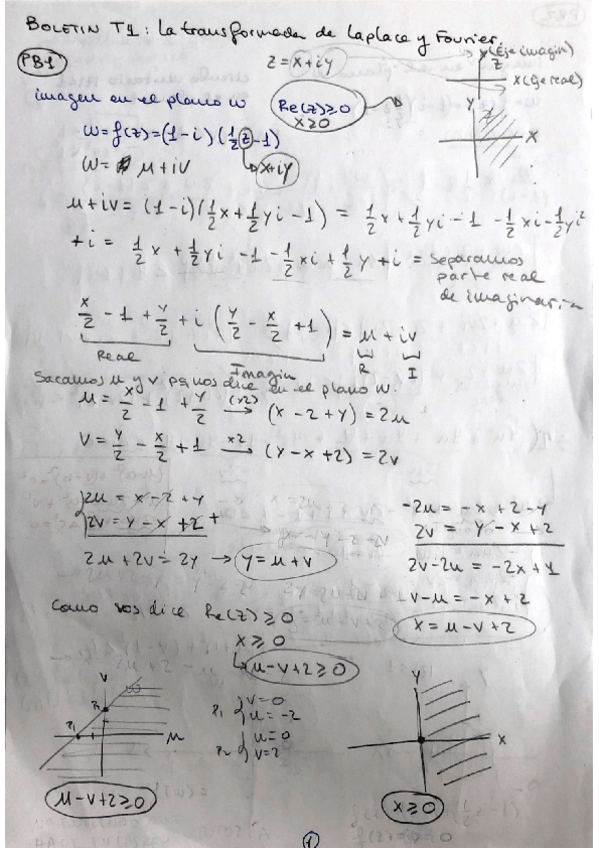 BOLETIN T1: La transformada de Laplace y Fourier.
PB1
z = x+iy
Y (Eje imagin)
z
X (Eje real)
imagen en el plano w
Re(z) ≥ 0
x ≥ 0
Y
z
X
w = f(z) = (1-i) (1/2 z - 1)
w = u + iv
x+iy
u + iv = (1-i)(1/2 x + 1/2 yi - 1) = 1/2 x + 1/2 yi - 1 - 1/2 xi - 1/2 yi²
+ i = 1/2 x + 1/2 yi - 1 - 1/2 xi + 1/2 y + i = Separamos
parte real
de imaginaria
x/2 - 1 + y/2 + i (y/2 - x/2 + 1) = u + iv
Real
Imagin
R
I
Sacamos u y v pq nos dice en el plano w.
u = x/2 - 1 + y/2 (x2) → (x - 2 + y) = 2u
v = y/2 - x/2 + 1 x2 → (y - x + 2) = 2v
2u = x - 2 + y
2v = y - x + 2 +
2u + 2v = 2y → y = u + v
-2u = -x + 2 - y
2v = y - x + 2
2v - 2u = -2x + 4
v - u = -x + 2
x = u - v + 2
Como nos dice Re(z) ≥ 0
x ≥ 0
u - v + 2 ≥ 0
v
w
P2
P1
u
u - v + 2 ≥ 0
P1 { v = 0
u = -2
P2 { u = 0
v = 2
Y
X
x ≥ 0
1